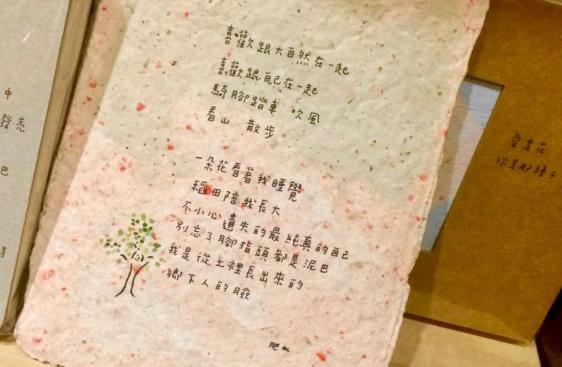 喜歡跟大自然在一起
喜歡跟自己在一起
騎腳踏車 吹風
看山 散步
一朵花看著我睡覺
稻田陪我長大
不小心遺失的最純真的自己
別忘了腳指頭都是泥巴
我是從土裡長出來的
鄉下人的臉
肥
中
發亮
巴
愛是花
你是那種子